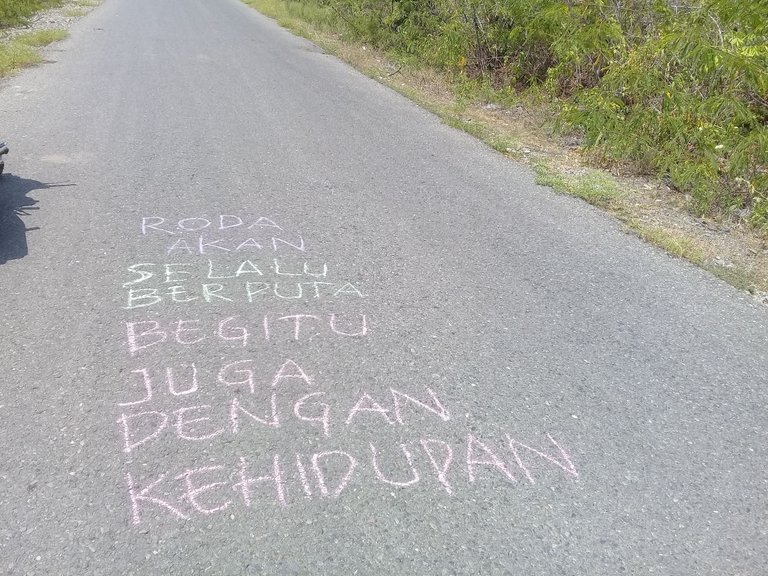 RODA
AKAN
SELALU
BERPUTA
BEGITU
JUGA
DENGAN
KEHIDUPAN